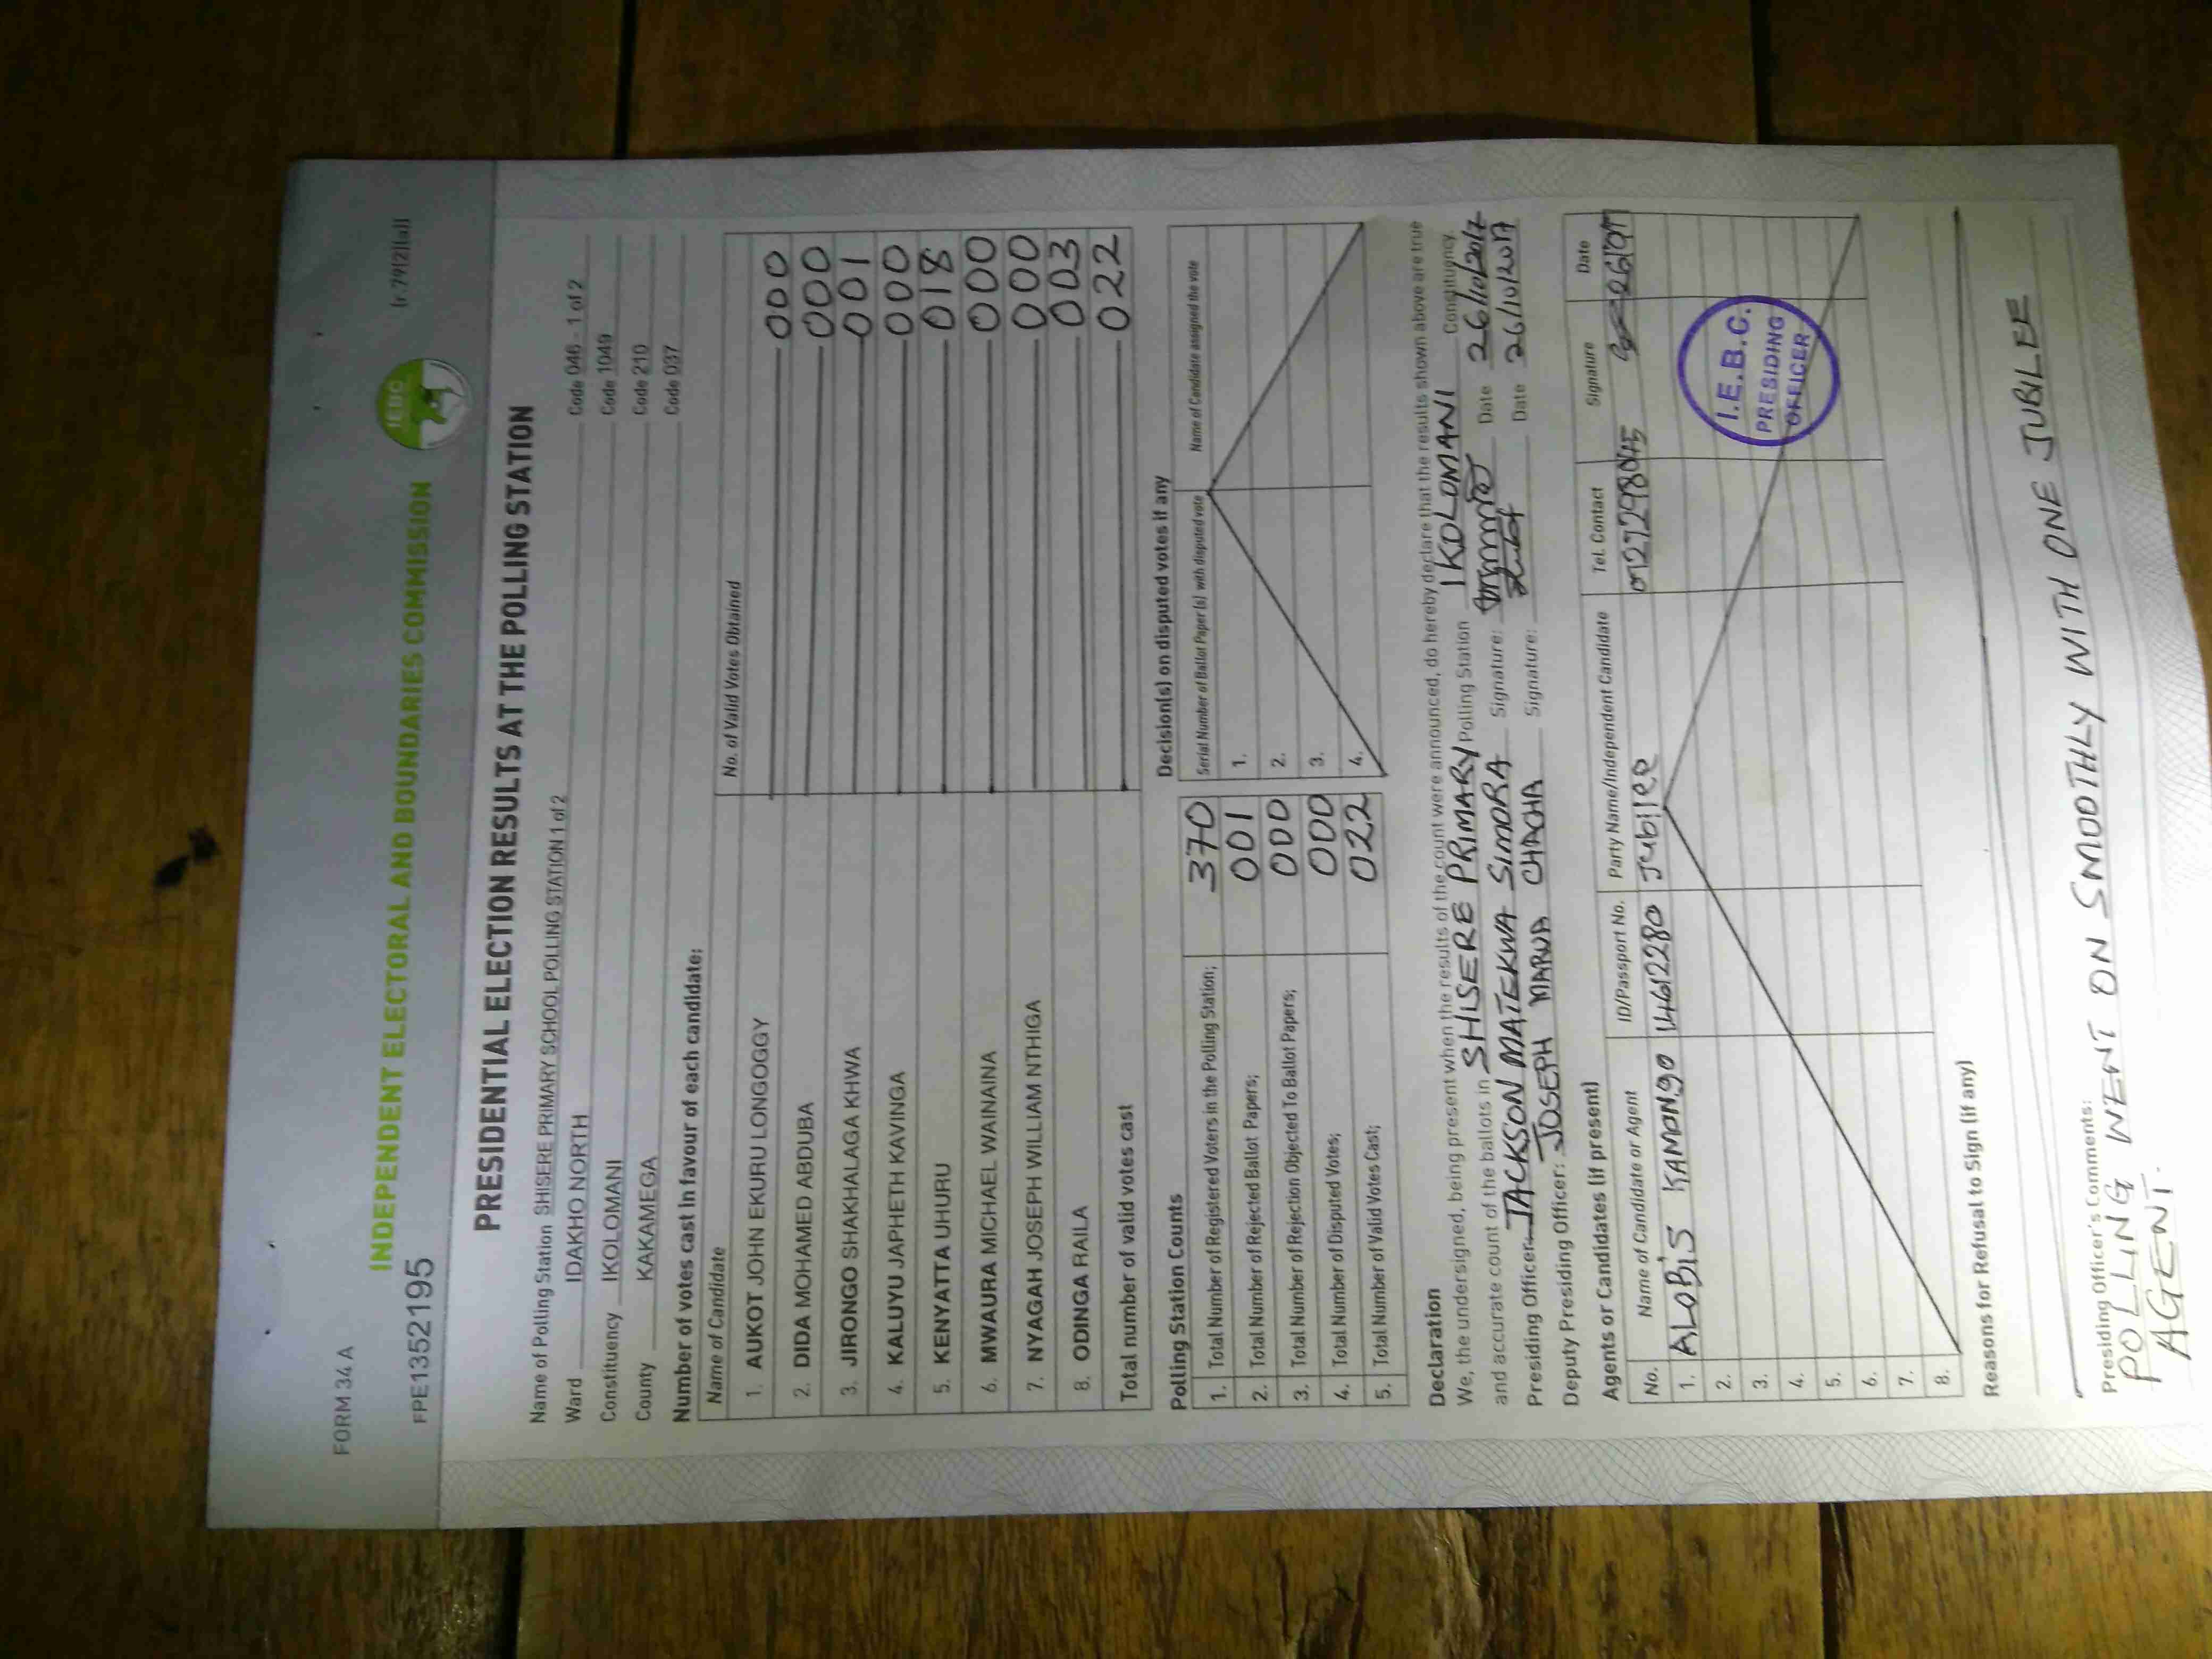 FORM 34 A
(r 79(2)(a))
INDEPENDENT ELECTORAL AND BOUNDARIES COMMISSION
IEBC
FPE1352195
PRESIDENTIAL ELECTION RESULTS AT THE POLLING STATION
Name of Polling Station SHISERE PRIMARY SCHOOL POLLING STATION 1 of 2 Code 046 - 1 of 2
Ward IDAKHO NORTH Code 1049
Constituency IKOLOMANI Code 210
County KAKAMEGA Code 037
Number of votes cast in favour of each candidate;
Name of Candidate No. of Valid Votes Obtained
1. AUKOT JOHN EKURU LONGOGGY 000
2. DIDA MOHAMED ABDUBA 000
3. JIRONGO SHAKHALAGA KHWA 001
4. KALUYU JAPHETH KAVINGA 000
5. KENYATTA UHURU 018
6. MWAURA MICHAEL WAINAINA 000
7. NYAGAH JOSEPH WILLIAM NTHIGA 000
8. ODINGA RAILA 003
Total number of valid votes cast 022
Polling Station Counts
1. Total Number of Registered Voters in the Polling Station; 370
2. Total Number of Rejected Ballot Papers; 001
3. Total Number of Rejection Objected To Ballot Papers; 000
4. Total Number of Disputed Votes; 000
5. Total Number of Valid Votes Cast; 022
Decision(s) on disputed votes if any
Serial Number of Ballot Paper (s) with disputed vote Name of Candidate assigned the vote
1.
2.
3.
4.
Declaration
We, the undersigned, being present when the results of the count were announced, do hereby declare that the results shown above are true
and accurate count of the ballots in SHISERE PRIMARY Polling Station IKOLOMANI Constituency.
Presiding Officer: JACKSON MATEKWA SIMORA Signature: Date 26/10/2017
Deputy Presiding Officer: JOSEPH MARWA CHACHA Signature: Date 26/10/2017
Agents or Candidates (if present)
No. Name of Candidate or Agent ID/Passport No. Party Name/Independent Candidate Tel. Contact Signature Date
1. ALOBIS KAMONGO 14612280 Jubilee
2.
3.
4.
5.
6.
7.
8.
I.E.B.C.
PRESIDING
OFFICER
Reasons for Refusal to Sign (if any)
Presiding Officer's Comments:
POLLING WENT ON SMOOTHLY WITH ONE JUBILEE
AGENT.